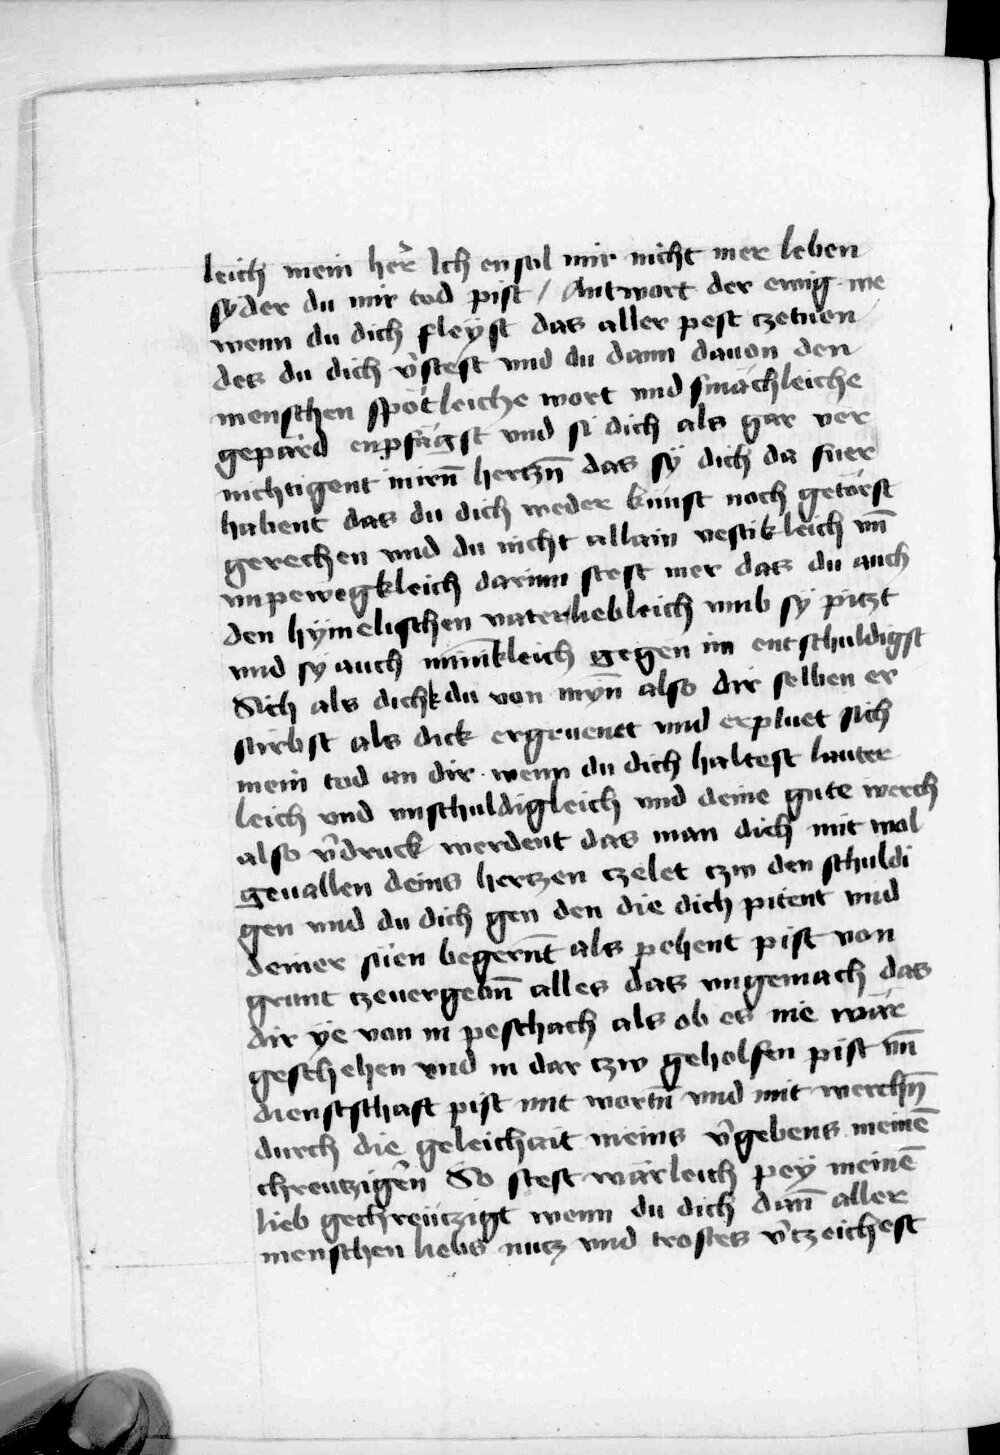 leich mein her̃ Ich en sol mir nicht mer leben
syder du mir tod pist / Antwort der ewig we
wenn du dich fleÿst das aller pest czetuen
des du dich v̉stest vnd du dann dauon den
menschen spötleiche wort vnd smächleiche
gepärd enpfägst vnd si dich als gar ver
nichtigent in irn̄ hertzn̄ das sÿ dich da fuer
habent das du dich weder kunst noch getörst
gerechen vnd du nicht allain vestikleich vn̄
vnpewegkleich darinn stest mer das du auch
den hÿmelischen vater liebleich vmb sÿ pitzt
vnd sÿ auch minikleich gegen im entschuldigst
Sich als dichk du von mÿn̄ also dir selben er
stirbst als dick ergruenet vnd erpluet sich
mein tod an dir · wenn du dich haltest lauter
leich vnd vnschuldigleich vnd deine gute werch
also v̉druck werdent das man dich mit wol
geuallen deins hertzen czelet czw den schuldi
gen vnd du dich gen den die dich pitent vnd
deiner süen begern̄t als pehent pist von
grunt czeuergebn̄ alles das vngemach das
dir ÿe von in peschach als ob es nie wär
geschehen vnd in dar czw geholfen pist vn̄
dienststhaft pist mit wortn̄ vnd mit werchn̄
durch die geleichait meins v̉gebens meinē
chreutzigern̄ So stest wärleich peÿ meinē
lieb gechreützigt wenn du dich dan̄ aller
menschen liebs nucz vnd trostes v̉czeichest